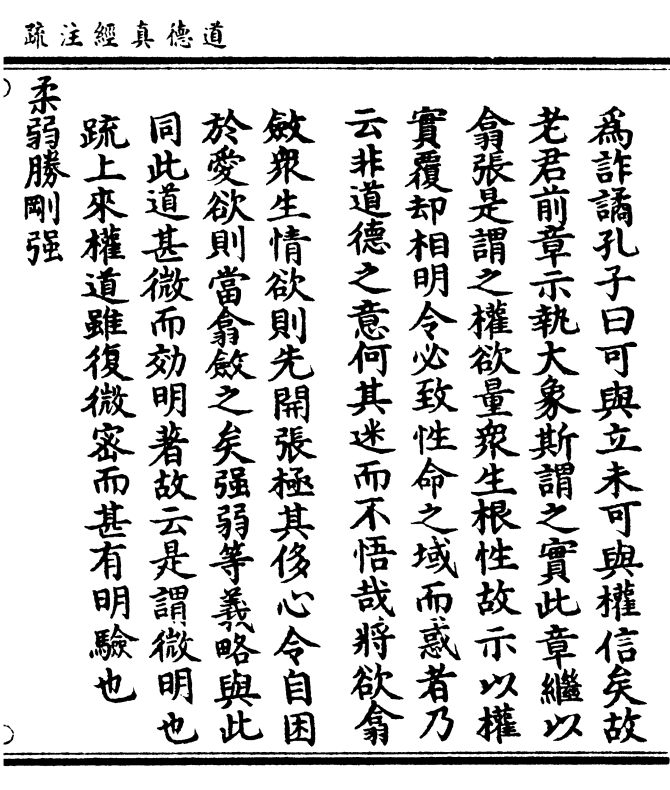 道德真經注疏
爲詐譎孔子曰可與立未可與權信矣故
老君前章示執大象斯謂之實此章繼以
翕張是謂之權欲量衆生根性故示以權
實覆却相明令必致性命之域而惑者乃
云非道德之意何其迷而不悟哉將欲翕
斂衆生情欲則先開張極其侈心令自困
於愛欲則當翕斂之矣强弱等義略與此
同此道甚微而効明著故云是謂微明也
疏上來權道雖復微密而甚有明驗也
柔弱勝剛强